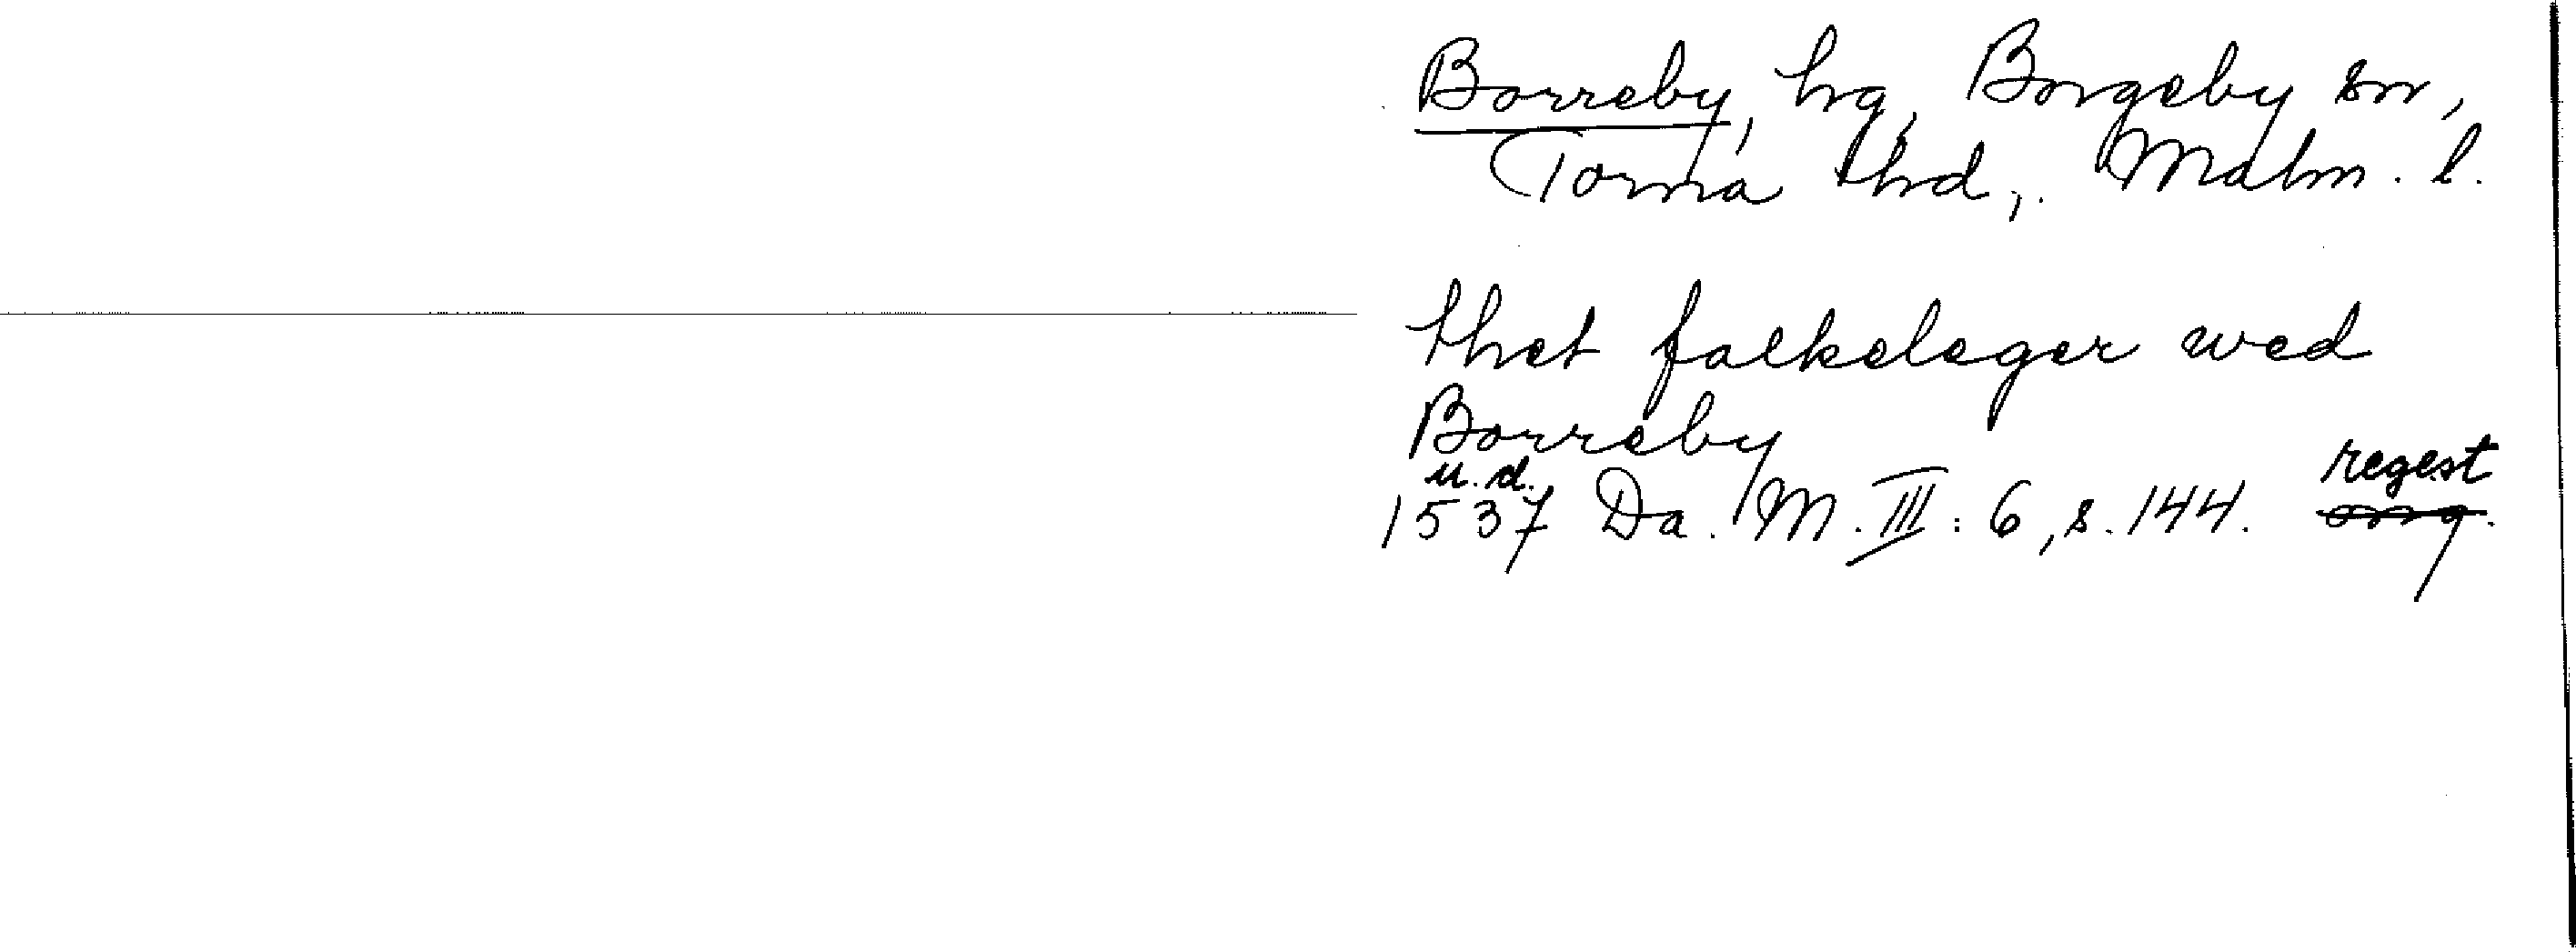 Borreby, hg, Borgeby sn,
Torna hd, Malm. l.
thet falkeleger wed
Borreby
u. d.
1537 Da. M. III: 6, s. 144. regest